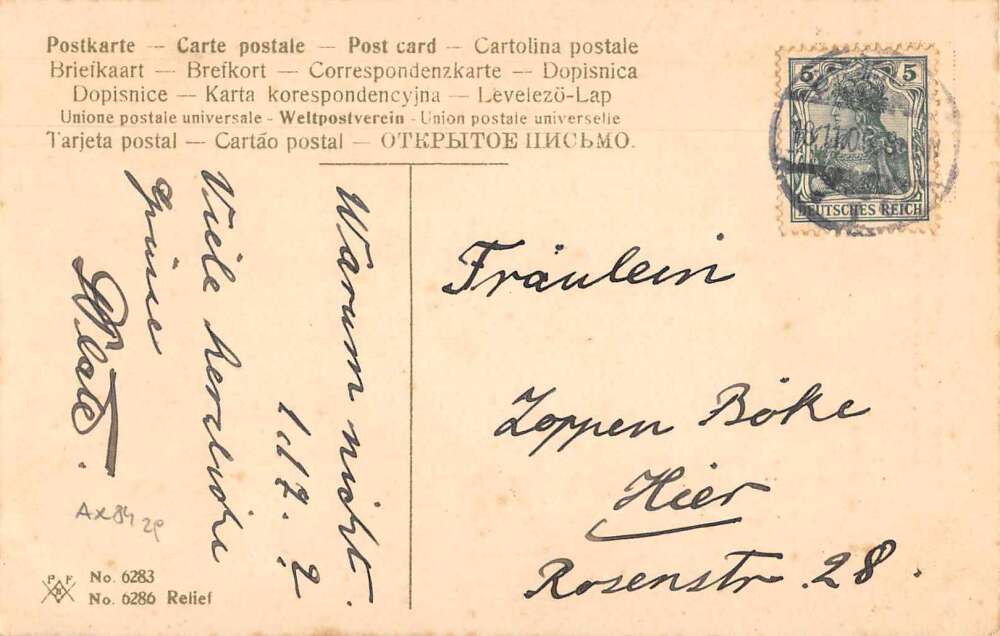 Postkarte — Carte postale — Post card — Cartolina postale
Briefkaart — Brefkort — Correspondenzkarte — Dopisnica
Dopisnice — Karta korespondencyjna — Levelező-Lap
Unione postale universale - Weltpostverein - Union postale universelle
Tarjeta postal — Cartão postal — ОТКРЫТОЕ ПИСЬМО.
5 5
DEUTSCHES REICH
Warum nicht.
Viele herzliche
Grüsse
Fräulein
Zoppen Böke
Hier
Rosenstr. 28.
Ax84
P F B
No. 6283
No. 6286 Relief